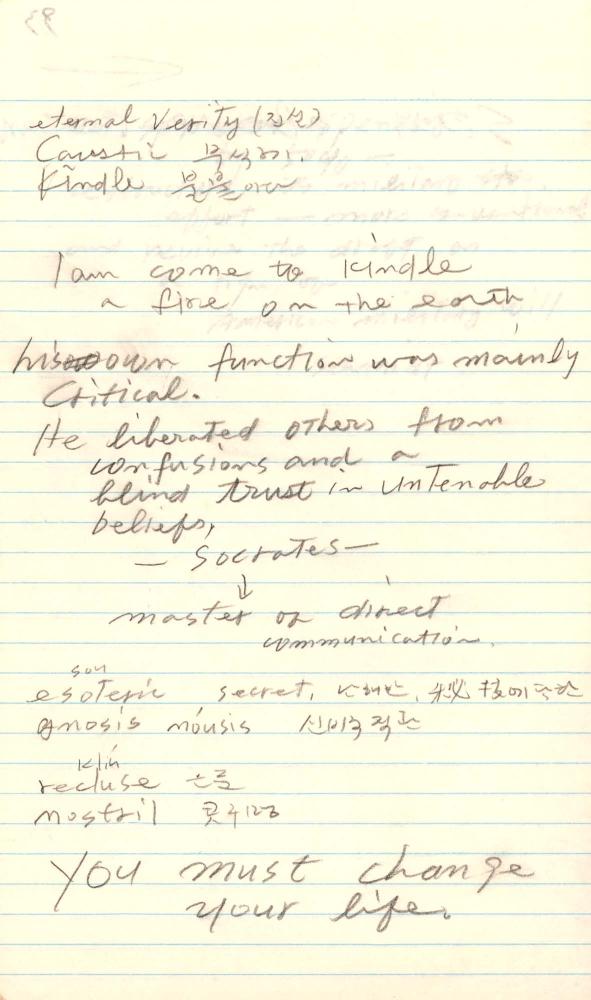 eternal Verity (진실)
Caustic 부식제.
Kindle 불을
I am come to kindle
a fire on the earth
his own function was mainly
Critical.
He liberated others from
confusions and a
blind trust in untenable
beliefs,
— Socrates —
↓
master of direct
communication.
esoteric secret,
gnosis nóusis 직관
recluse 은둔
nostril 콧구멍
You must change
your life.